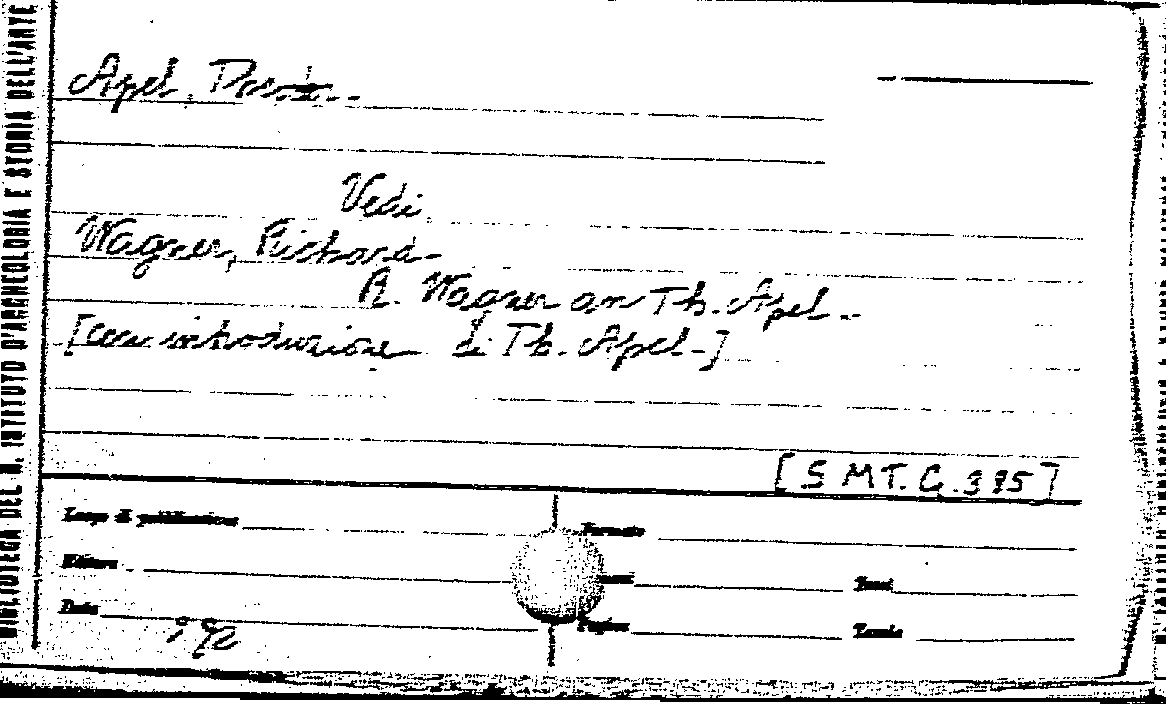 BIBLIOTECA DEL R. ISTITUTO D'ARCHEOLOGIA E STORIA DELL'ARTE
Apel,
Vedi
Wagner, Richard-
R. Wagner an Th. Apel.-
[con introduzione di Th. Apel-]
[S MT. G. 395]
Luogo di pubblicazione
Formato
Editore
Tomi
Data
Pagine
Tavole